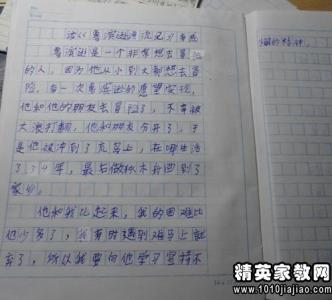 读《鲁滨逊漂流记》有感
鲁滨逊是一个非常想去冒险
的人，因为他从小到大都想去冒
险，有一次鲁滨逊的愿望实现，
他和他的朋友去冒险了，不幸被
大浪打翻，他和朋友分开了，于
是他被冲到了荒岛上，在哪生活
了34年，最后做积木舟回到了
家乡。
他和我比起来，我的困难比
他少多了，我有时遇到难与上就
弃了，所以我要向他学习坚持不
懈的精神。
精英家教网
www.1010jiajiao.com